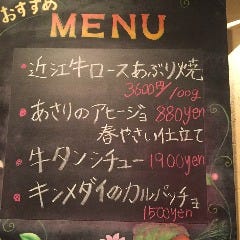 おすすめ
MENU
・近江牛ロースあぶり焼
3600円/100g
・あさりのアヒージョ 880yen
春やさい仕立て
・牛タンシチュー 1900yen
・キンメダイのカルパッチョ
1500yen